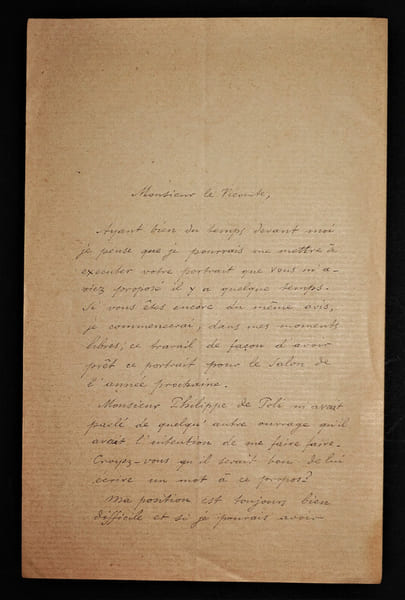 Monsieur le Vicomte,
Ayant bien du temps devant moi
je pense que je pourrais me mettre à
executer votre portrait que vous m'a-
viez proposé il y a quelque temps.
Si vous êtes encore du même avis,
je commencerai, dans mes moments
libres, ce travail de façon d'avoir
prêt ce portrait pour le Salon de
l'année prochaine.
Monsieur Philippe de Poli m'avait
parlé de quelqu'autre ouvrage qu'il
avait l'intention de me faire faire.
Croyez-vous qu'il serait bon de lui
écrire un mot à ce propos?
Ma position est toujours bien
difficile et si je pouvais avoir